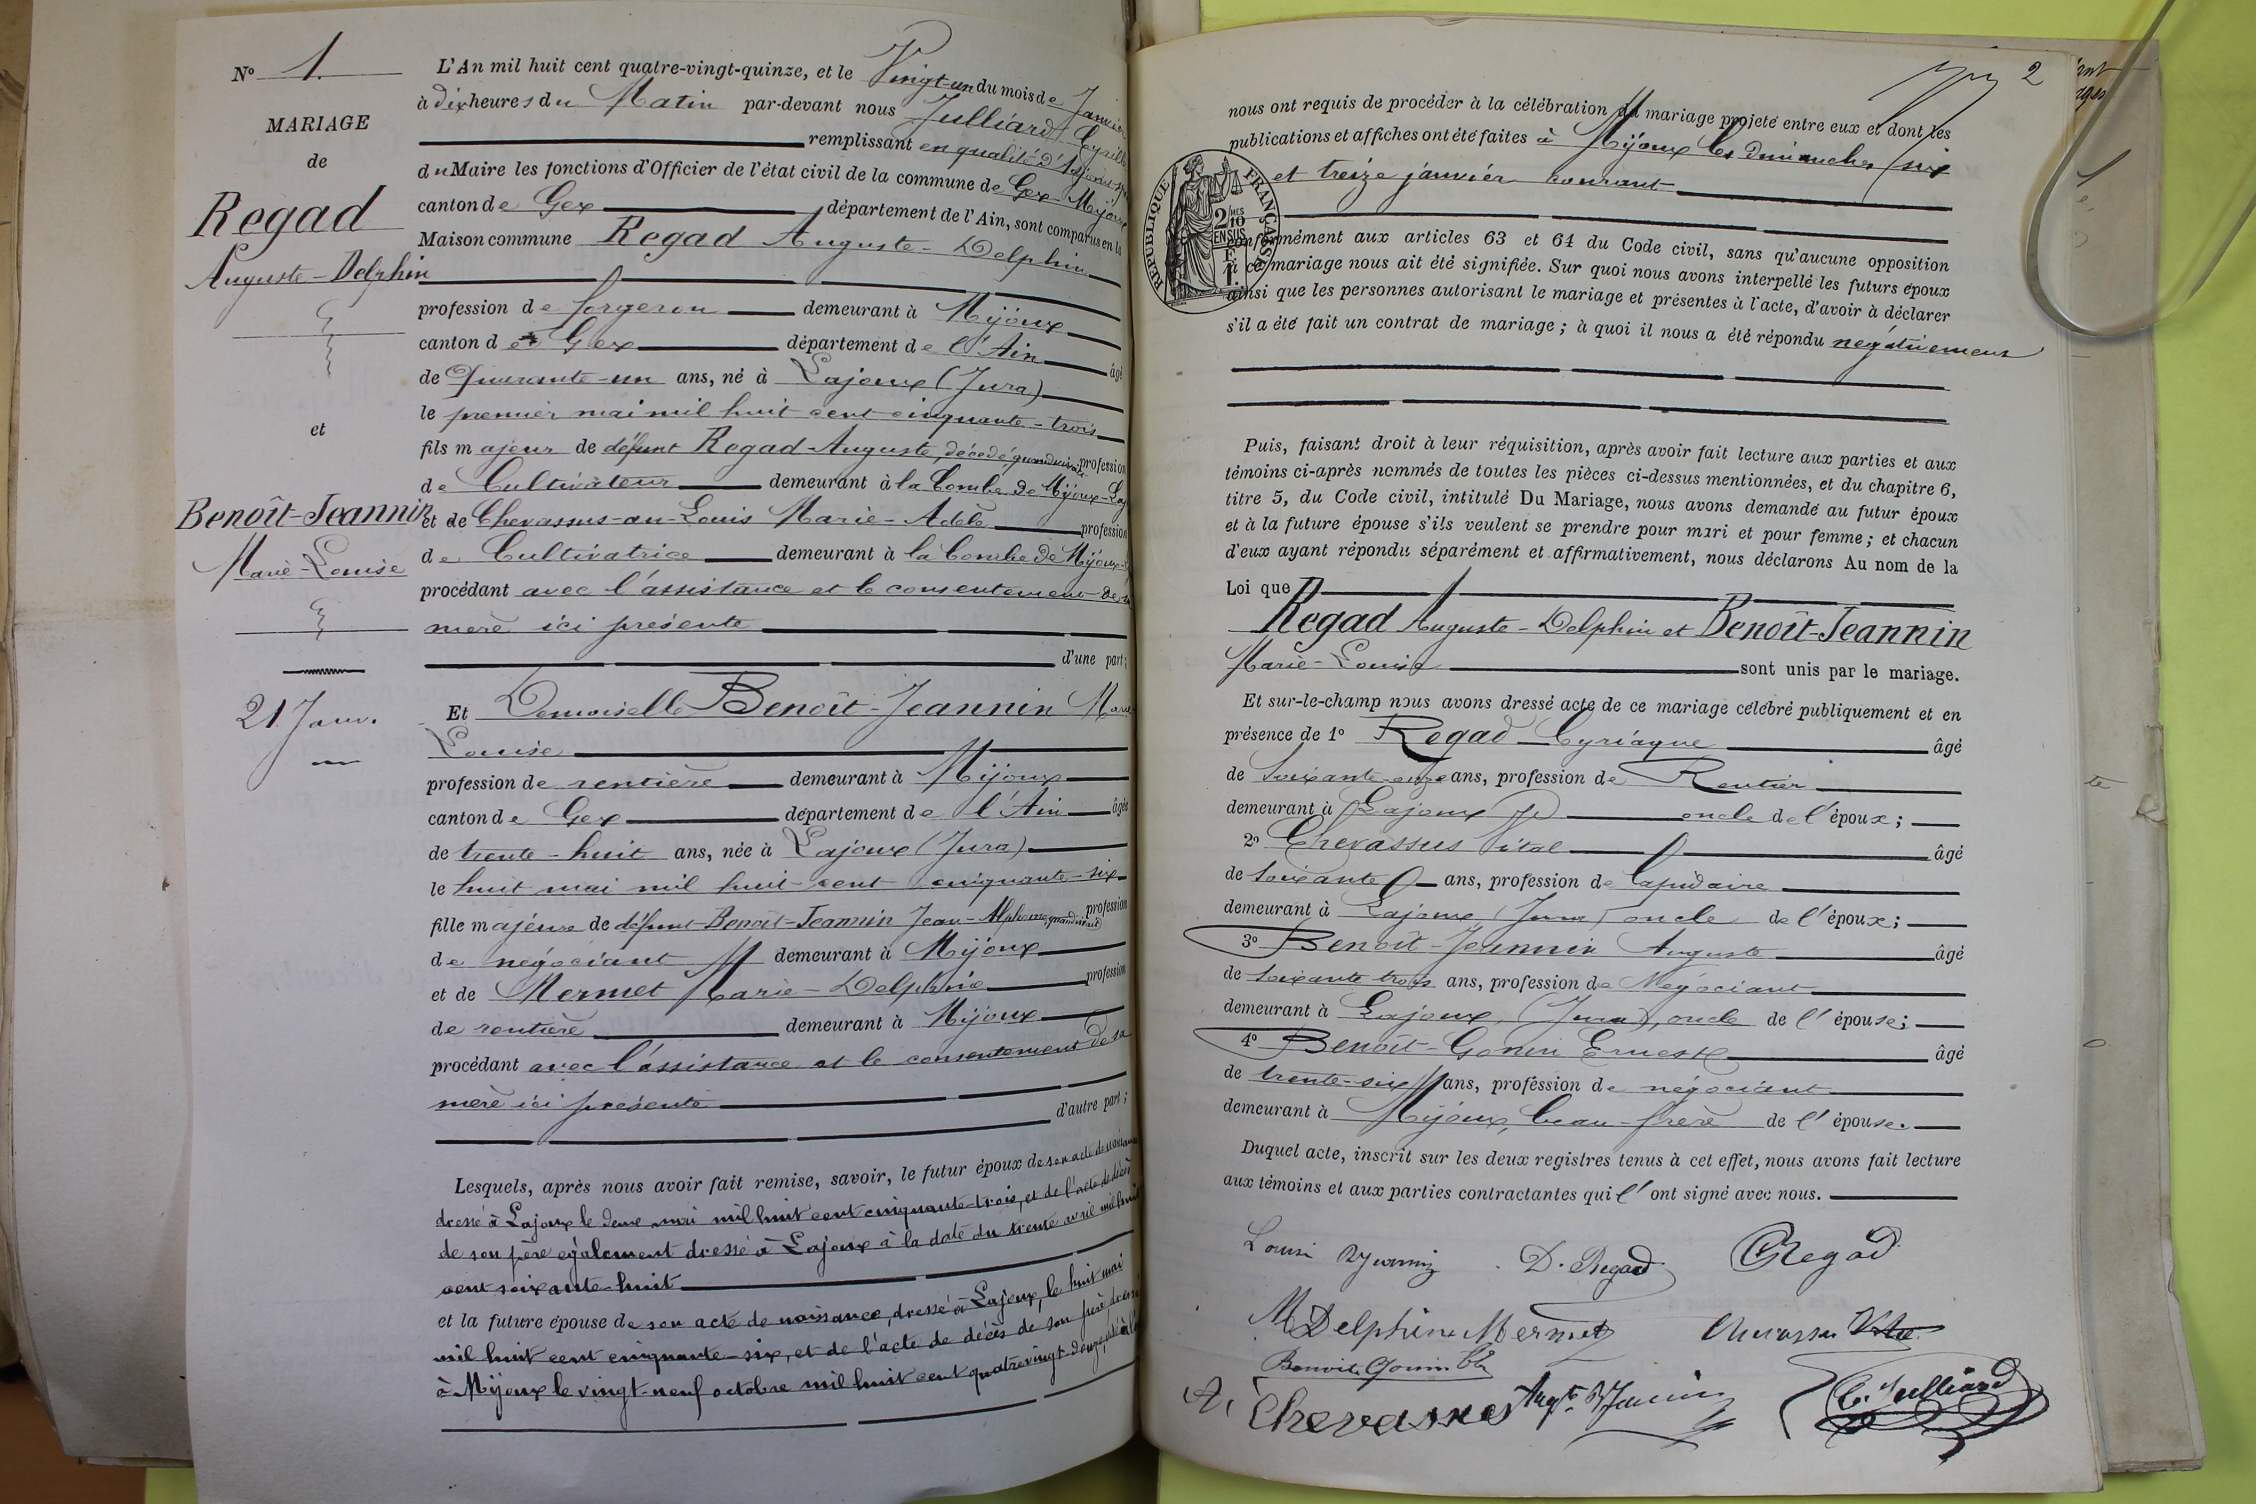 N° 1.
MARIAGE
de
Regad
Auguste-Delphin
et
Benoît-Jeannin
Marie-Louise
21 Janv.
L'An mil huit cent quatre-vingt-quinze, et le Vingt-un du mois de Janvier
à dix heures du Matin par-devant nous Julliard Cyrille
remplissant en qualité d'Adjoint
du Maire les fonctions d'Officier de l'état civil de la commune de Gex-Mijoux
canton de Gex département de l'Ain, sont comparus en la
Maison commune Regad Auguste-Delphin
profession de forgeron demeurant à Mijoux
canton de Gex département de l'Ain âgé
de Quarante-un ans, né à Lajoux (Jura)
le premier mai mil huit cent cinquante-trois
fils majeur de défunt Regad-Auguste, décédé quand vivait profession
de Cultivateur demeurant à la Combe de Mijoux-Laj
et de Chevassus-au-Louis Marie-Adèle profession
de Cultivatrice demeurant à la Combe de Mijoux
procédant avec l'assistance et le consentement de sa
mère ici présente
d'une part;
Et Demoiselle Benoît-Jeannin Marie
Louise
profession de rentière demeurant à Mijoux
canton de Gex département de l'Ain âgée
de trente-huit ans, née à Lajoux (Jura)
le huit mai mil huit-cent cinquante-six
fille majeure de défunt Benoît-Jeannin Jean-Alphonse quand vivait profession
de négociant demeurant à Mijoux
et de Mermet Marie-Delphine profession
de rentière demeurant à Mijoux
procédant avec l'assistance et le consentement de sa
mère ici présente
d'autre part;
Lesquels, après nous avoir fait remise, savoir, le futur époux de son acte de naissance
dressé à Lajoux le deux mai mil huit cent cinquante-trois, et de l'acte de décès
de son père également dressé à Lajoux à la date du trente avril mil huit
cent soixante-huit
et la future épouse de son acte de naissance, dressé à Lajoux, le huit mai
mil huit cent cinquante-six, et de l'acte de décès de son père dressé
à Mijoux le vingt-neuf octobre mil huit cent quatre vingt-douze
2
nous ont requis de procéder à la célébration du mariage projeté entre eux et dont les
publications et affiches ont été faites à Mijoux les dimanches six
et treize janvier courant
RÉPUBLIQUE FRANÇAISE
2/10 EN SUS
conformément aux articles 63 et 64 du Code civil, sans qu'aucune opposition
à ce mariage nous ait été signifiée. Sur quoi nous avons interpellé les futurs époux
ainsi que les personnes autorisant le mariage et présentes à l'acte, d'avoir à déclarer
s'il a été fait un contrat de mariage; à quoi il nous a été répondu négativement
Puis, faisant droit à leur réquisition, après avoir fait lecture aux parties et aux
témoins ci-après nommés de toutes les pièces ci-dessus mentionnées, et du chapitre 6,
titre 5, du Code civil, intitulé Du Mariage, nous avons demandé au futur époux
et à la future épouse s'ils veulent se prendre pour mari et pour femme; et chacun
d'eux ayant répondu séparément et affirmativement, nous déclarons Au nom de la
Loi que
Regad Auguste-Delphin et Benoît-Jeannin
Marie-Louise sont unis par le mariage.
Et sur-le-champ nous avons dressé acte de ce mariage célébré publiquement et en
présence de 1° Regad Cyriaque âgé
de soixante-onze ans, profession de Rentier
demeurant à Lajoux oncle de l'époux;
2° Chevassus Vital âgé
de soixante ans, profession de lapidaire
demeurant à Lajoux (Jura) oncle de l'époux;
3° Benoît-Jeannin Auguste âgé
de soixante trois ans, profession de Négociant
demeurant à Lajoux (Jura), oncle de l'épouse;
4° Benoît-Gonin Ernest âgé
de trente-six ans, profession de négociant
demeurant à Mijoux, beau-frère de l'épouse.
Duquel acte, inscrit sur les deux registres tenus à cet effet, nous avons fait lecture
aux témoins et aux parties contractantes qui l'ont signé avec nous.
Louise BJeannin D. Regad CRegad
M Delphine Mermet Chevassus Vital
Benoit Gonin
A. Chevassus Augte BJeannin C. Julliard